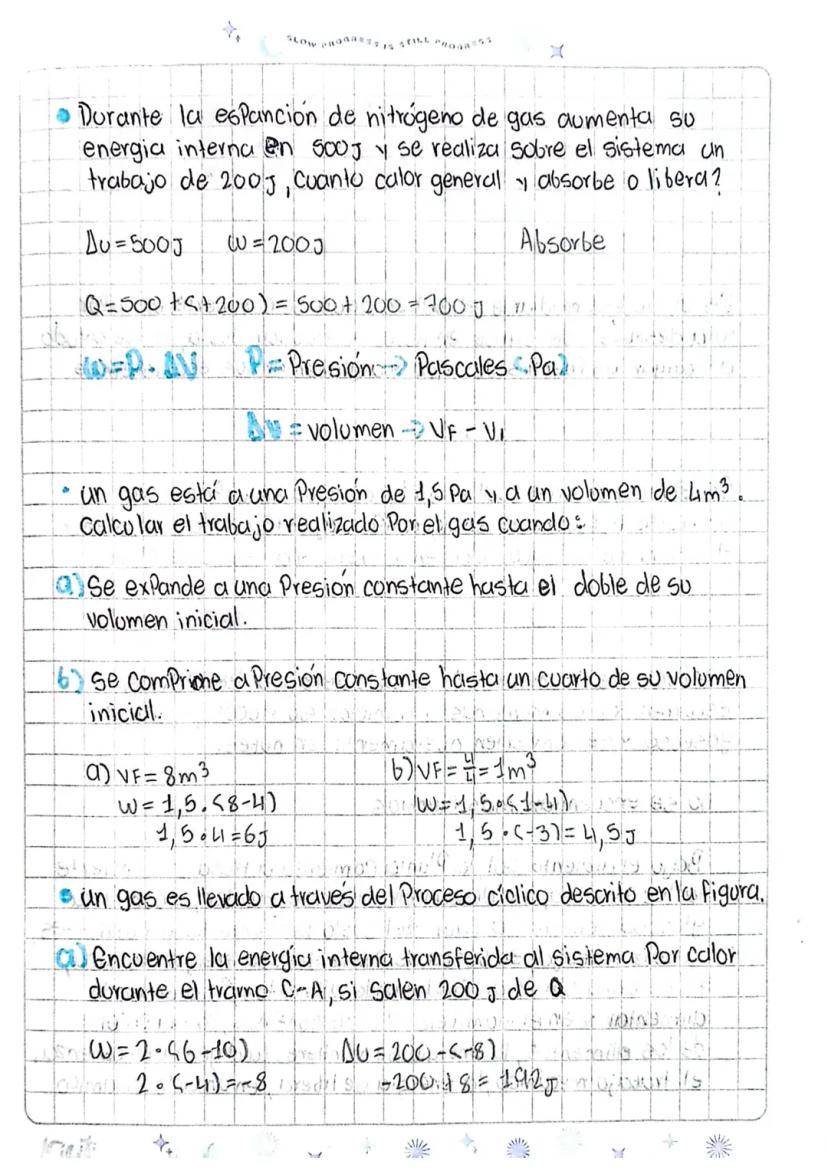 SLOW PROGRESS IS STILL PROGRESS
Durante la esPanción de nitrógeno de gas aumenta su
energia interna en 500J y se realiza sobre el sistema un
trabajo de 200J, Cuanto calor general y absorbe o libera?
Δu = 500J    W = 200J    Absorbe
Q = 500 + (+200) = 500 + 200 = 700 J
W = P · ΔV    P = Presión → Pascales (Pa)
Δv = volumen → VF - VI
un gas está a una Presión de 1,5 Pa y a un volumen de 4m³.
Calcular el trabajo realizado Por el gas cuando:
a) Se exPande a una Presión constante hasta el doble de su
volumen inicial.
b) se comPrime a Presión constante hasta un cuarto de su volumen
inicial.
a) VF = 8m³    b) VF = 4/4 = 1m³
W = 1,5 · (8-4)    W = 1,5 · (1-4)
1,5 · 4 = 6J    1,5 · (-3) = 4,5J
un gas es llevado a través del Proceso cíclico descrito en la figura.
a) Encuentre la energía interna transferida al sistema Por calor
durante el tramo C-A, si salen 200 J de Q
W = 2 · (6-10)    ΔU = 200 - (-8)
2 · (-4) = -8    -200 + 8 = 192J